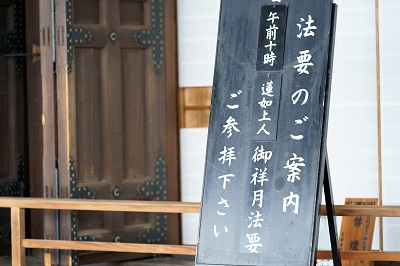 法要のご案内
午前十時 蓮如上人 御祥月法要
ご参拝下さい
禁煙